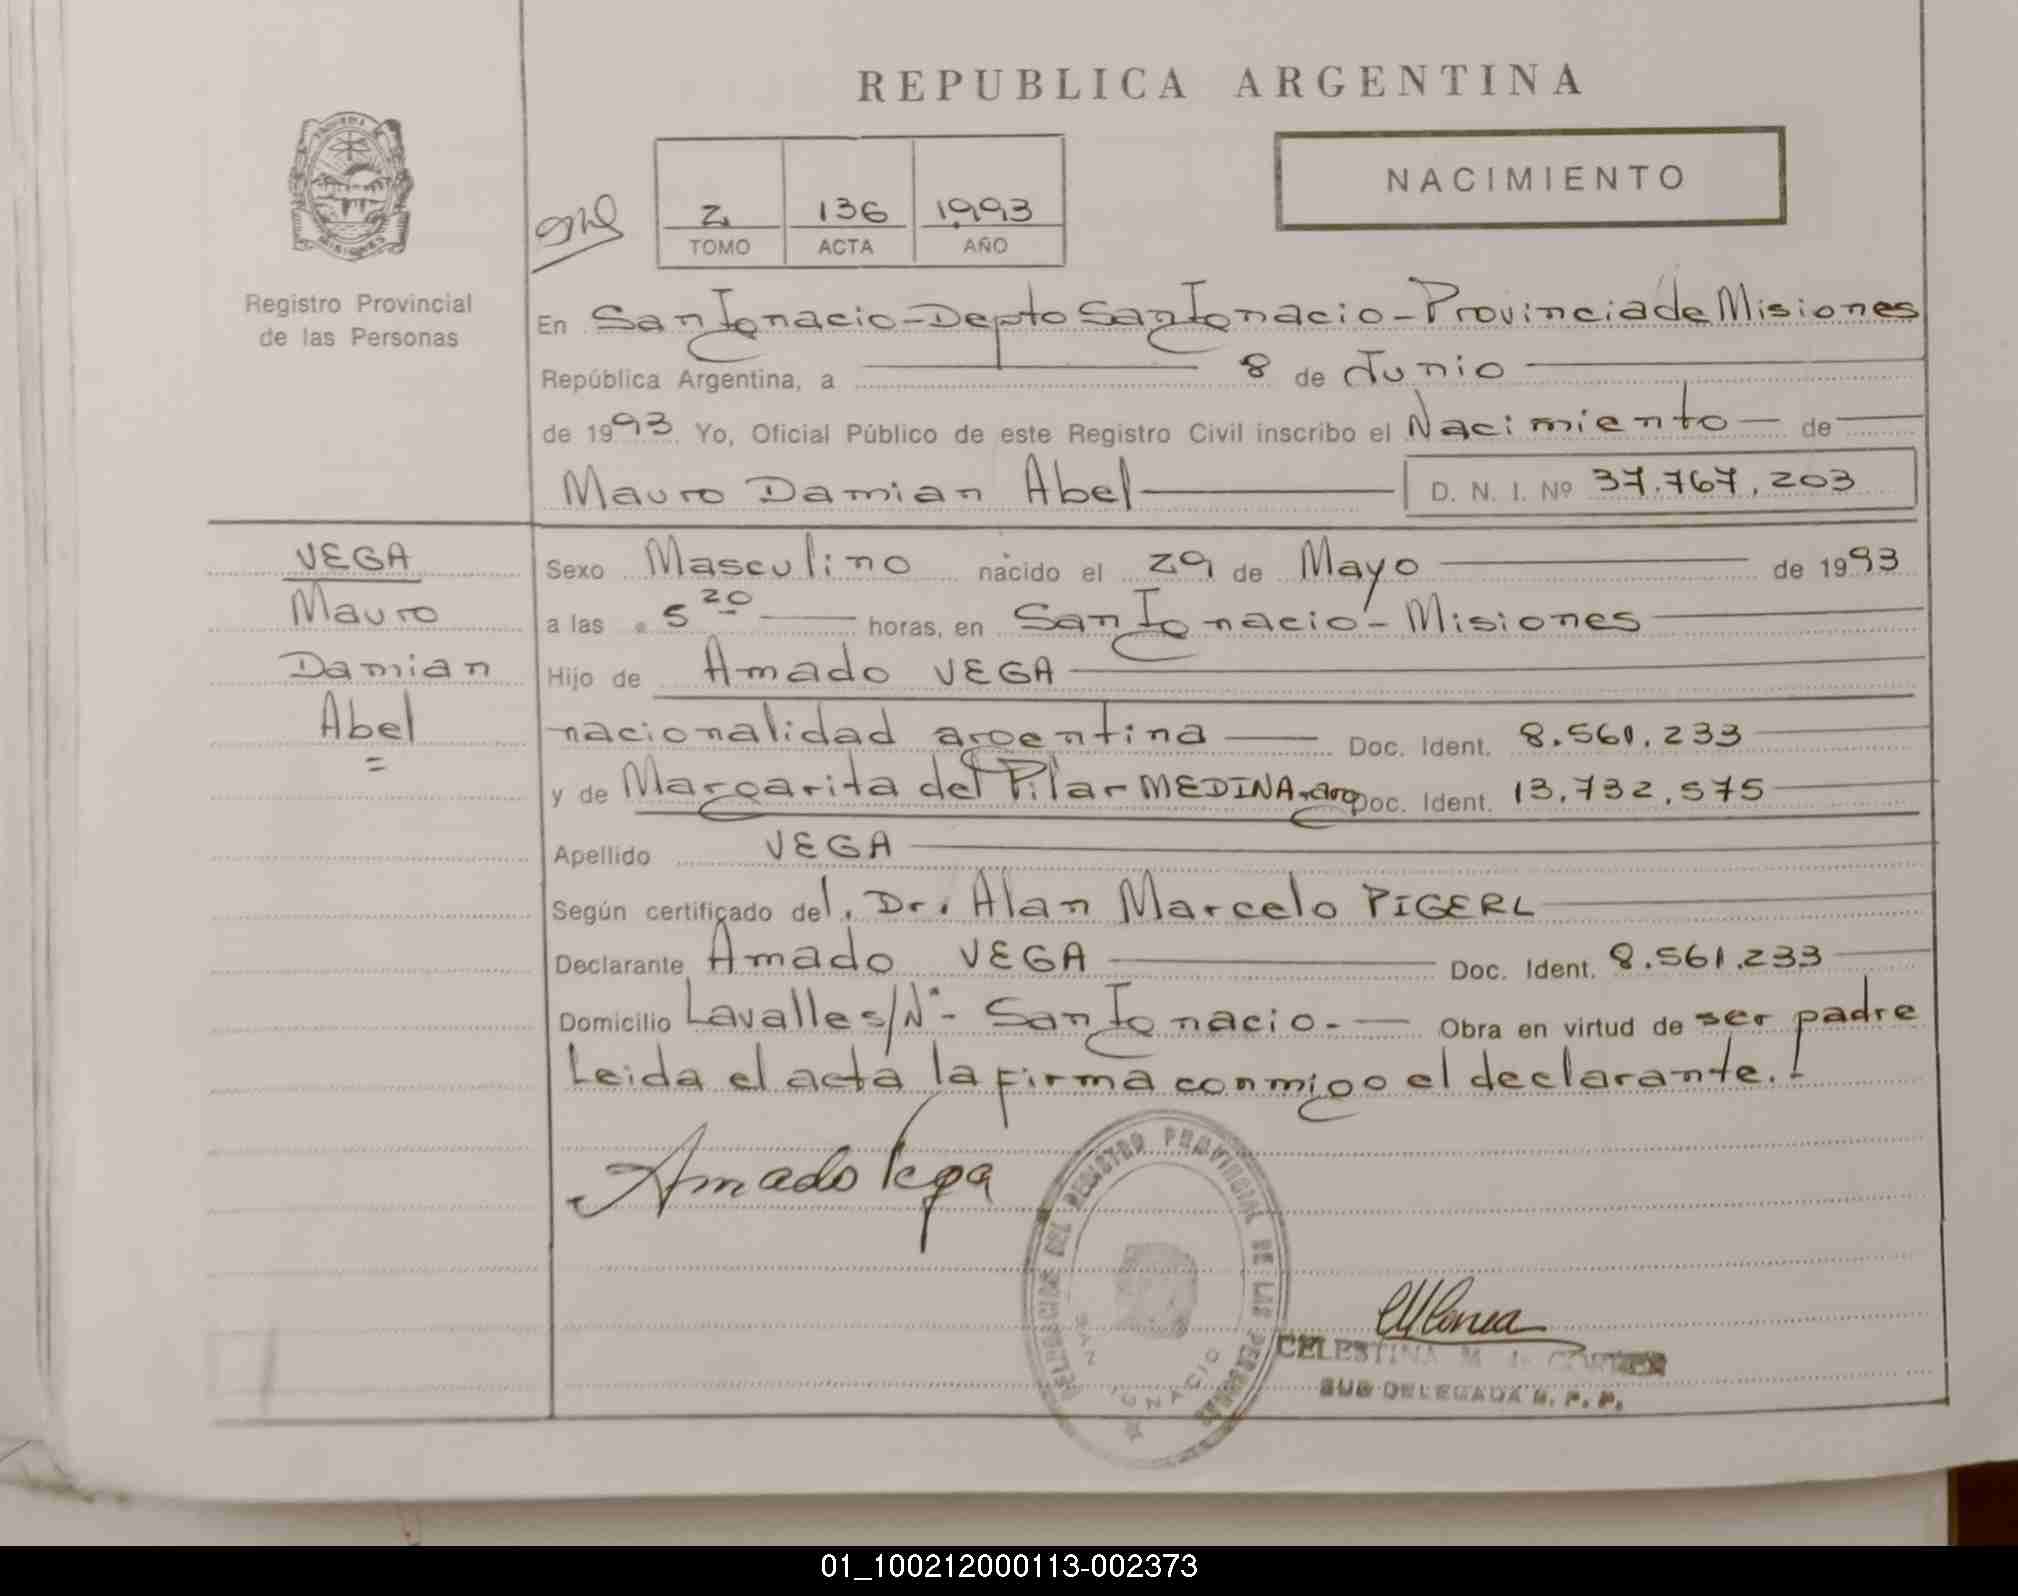 REPUBLICA ARGENTINA
NACIMIENTO
2 136 1993
TOMO ACTA AÑO
Registro Provincial
de las Personas
En San Ignacio - Depto San Ignacio - Provincia de Misiones
República Argentina, a 8 de Junio
de 1993 Yo, Oficial Público de este Registro Civil inscribo el Nacimiento de
Mauro Damian Abel D. N. I. Nº 37.767.203
VEGA
Mauro
Damian
Abel
Sexo Masculino nacido el 29 de Mayo de 1993
a las 5 20 horas, en San Ignacio - Misiones
Hijo de Amado VEGA
nacionalidad argentina Doc. Ident. 8.561.233
y de Margarita del Pilar MEDINA, arg Doc. Ident. 13.732.575
Apellido VEGA
Según certificado del. Dr. Alan Marcelo PIGERL
Declarante Amado VEGA Doc. Ident. 8.561.233
Domicilio Lavalle s/Nº - San Ignacio. - Obra en virtud de ser padre
Leida el acta la firma conmigo el declarante.
Amado Vega
REGISTRO PROVINCIAL DE LAS PERSONAS
SAN IGNACIO
CELESTINA M. de
SUB DELEGADA R. P. P.
01_100212000113-002373